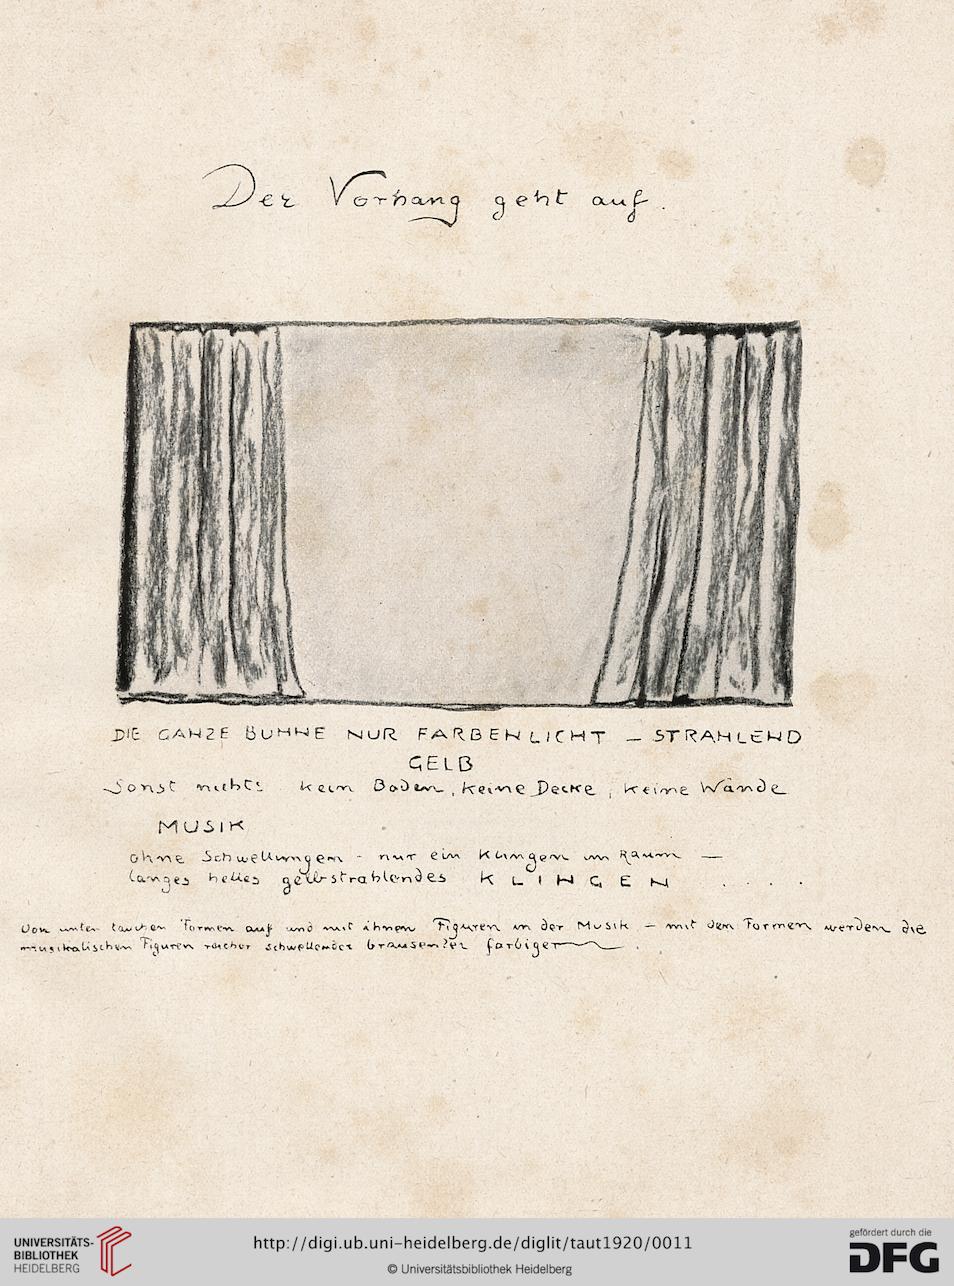 Der Vorhang geht auf.
DIE GANZE BÜHNE NUR FARBENLICHT — STRAHLEND
GELB
Sonst nichts. kein Boden, keine Decke, keine Wände
MUSIK
ohne Schwellungen - nur ein Klingen im Raum —
langes helles gelbstrahlendes KLINGEN . . . .
Von unten tauchen Formen auf und mit ihnen Figuren in der Musik — mit den Formen werden die
musikalischen Figuren reicher schwellender brausender farbiger .
UNIVERSITÄTS-
BIBLIOTHEK
HEIDELBERG
http://digi.ub.uni-heidelberg.de/diglit/taut1920/0011
© Universitätsbibliothek Heidelberg
gefördert durch die
DFG